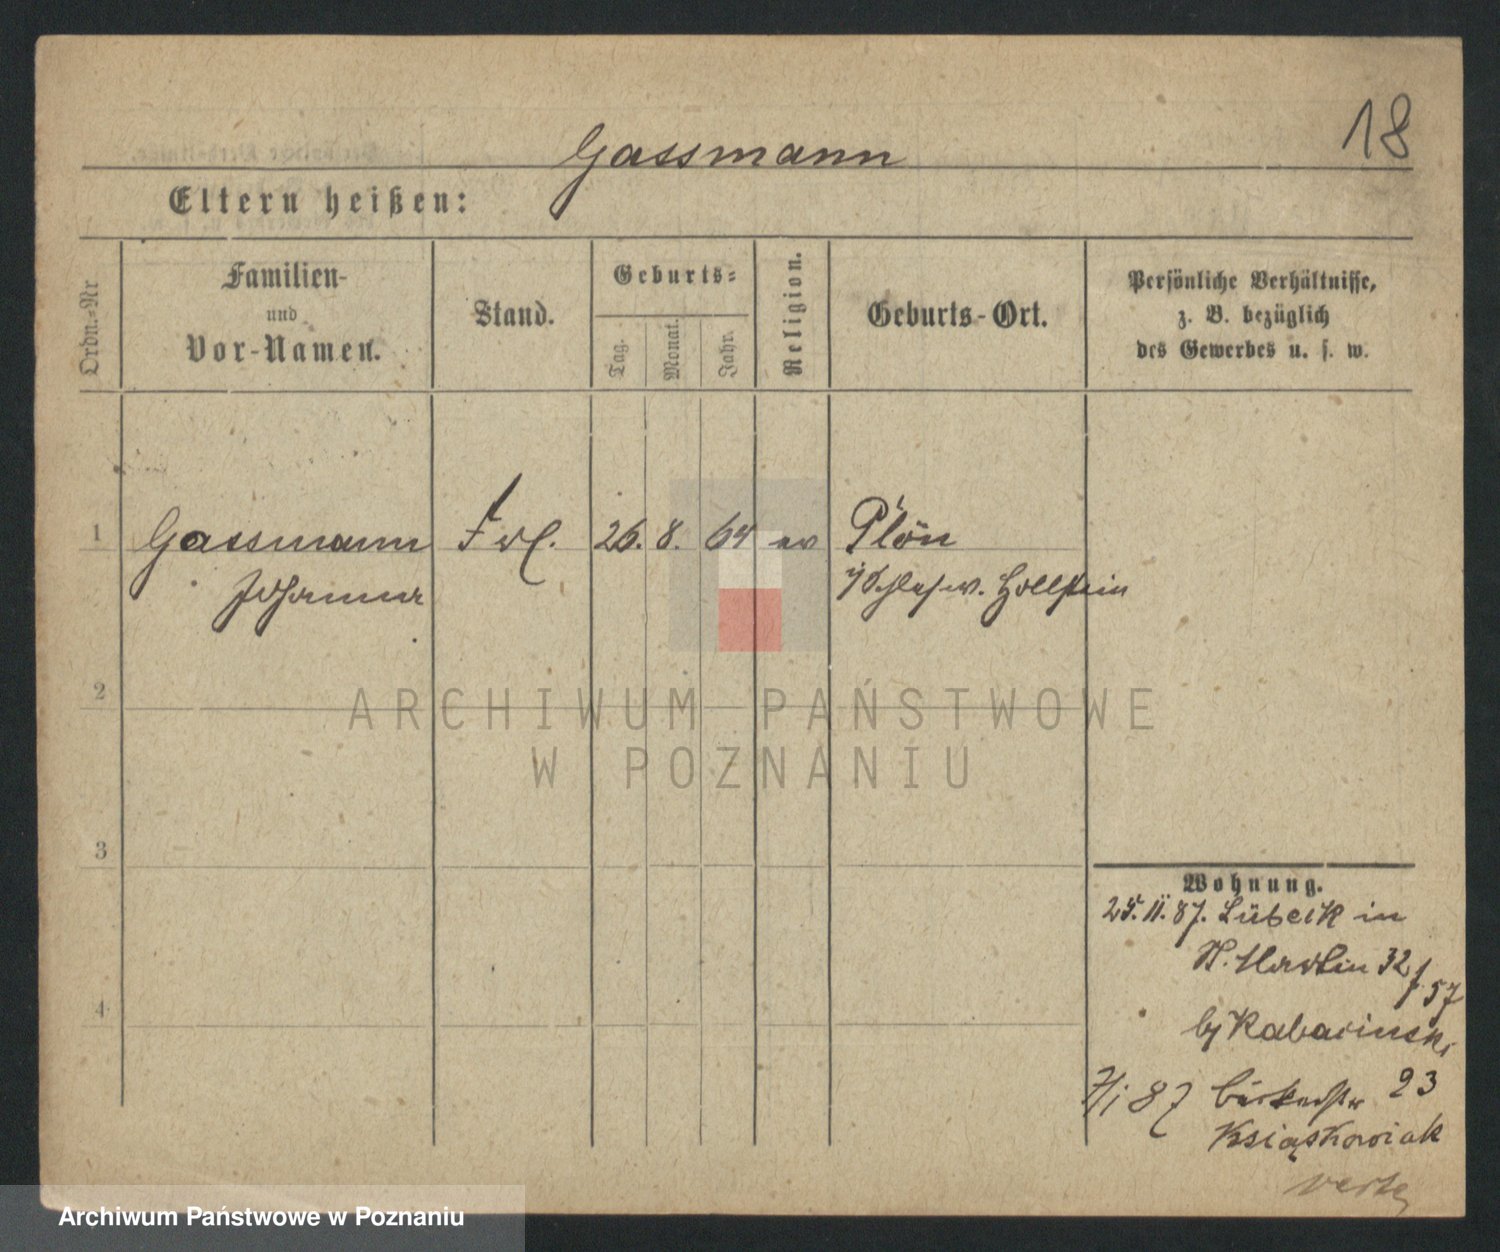 18
Gassmann
Eltern heißen:
Ordn.-Nr
Familien-
und
Vor-Namen.
Stand.
Geburts-
Tag.
Monat.
Jahr.
Religion.
Geburts-Ort.
Persönliche Verhältnisse,
z. B. bezüglich
des Gewerbes u. s. w.
1 Gassmann Frl. 26. 8. 64 ev Plön
Johanna i/Schlesw. Hollstein
2
ARCHIWUM PAŃSTWOWE
W POZNANIU
3
4
Wohnung.
25. II. 87. Lübeck in
St. Martin 32/57
by Rabacinski
7/i 87 23
Książkowiak
verte
Archiwum Państwowe w Poznaniu